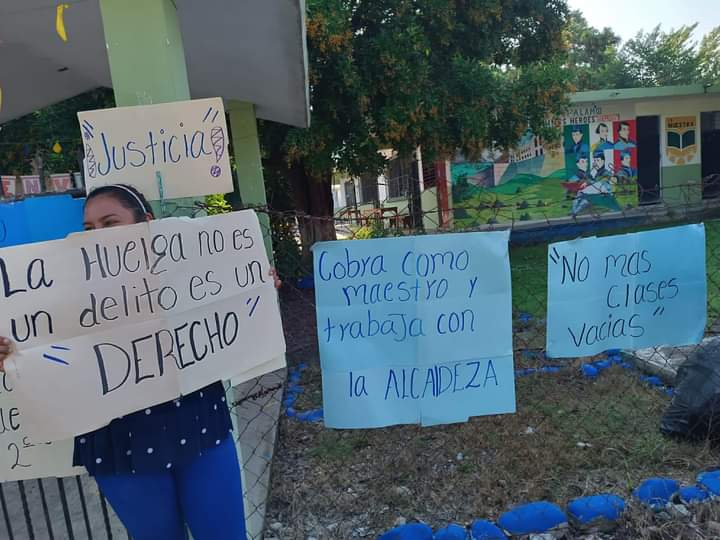 ¡Justicia!
La Huelga no es
un delito es un
"DERECHO"
2
Cobra como
maestro y
trabaja con
la ALCALDEZA
"No mas
clases
vacias"
ALAMO
HEROES
NUESTRA